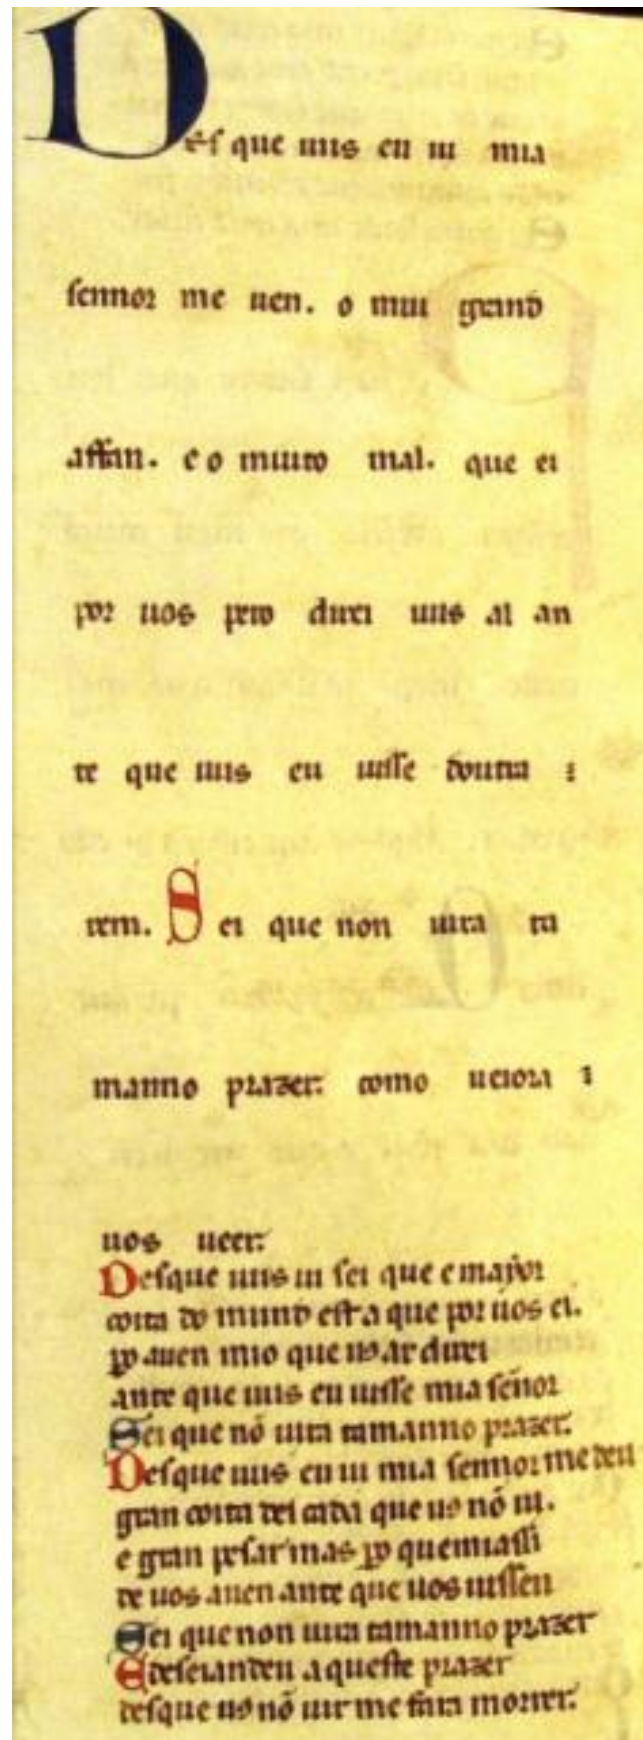 Des que uus eu ui mia
sennor me uen. o mui grand
affan. e o muito mal. que ei
por uos pero direi uus al an
te que uus eu uisse doutra
rem. Sei que non uira ta
manno prazer. como ueiora
uos ueer.
Desque uus ui sei que e major
coita do mund esta que por uos ei.
ꝑo auen mio que us ar direi
ante que uus eu uisse mia señor
Sei que nõ uira tamanno prazer.
Desque uus eu ui mia sennor me deu
gran coita dei cada que us nõ ui.
e gran pesar mas ꝑo quemiassi
de uos auen ante que uos uissen
Sei que non uira tamanno prazer
E deseiandeu aqueste prazer
desque us nõ uir me fara morrer.